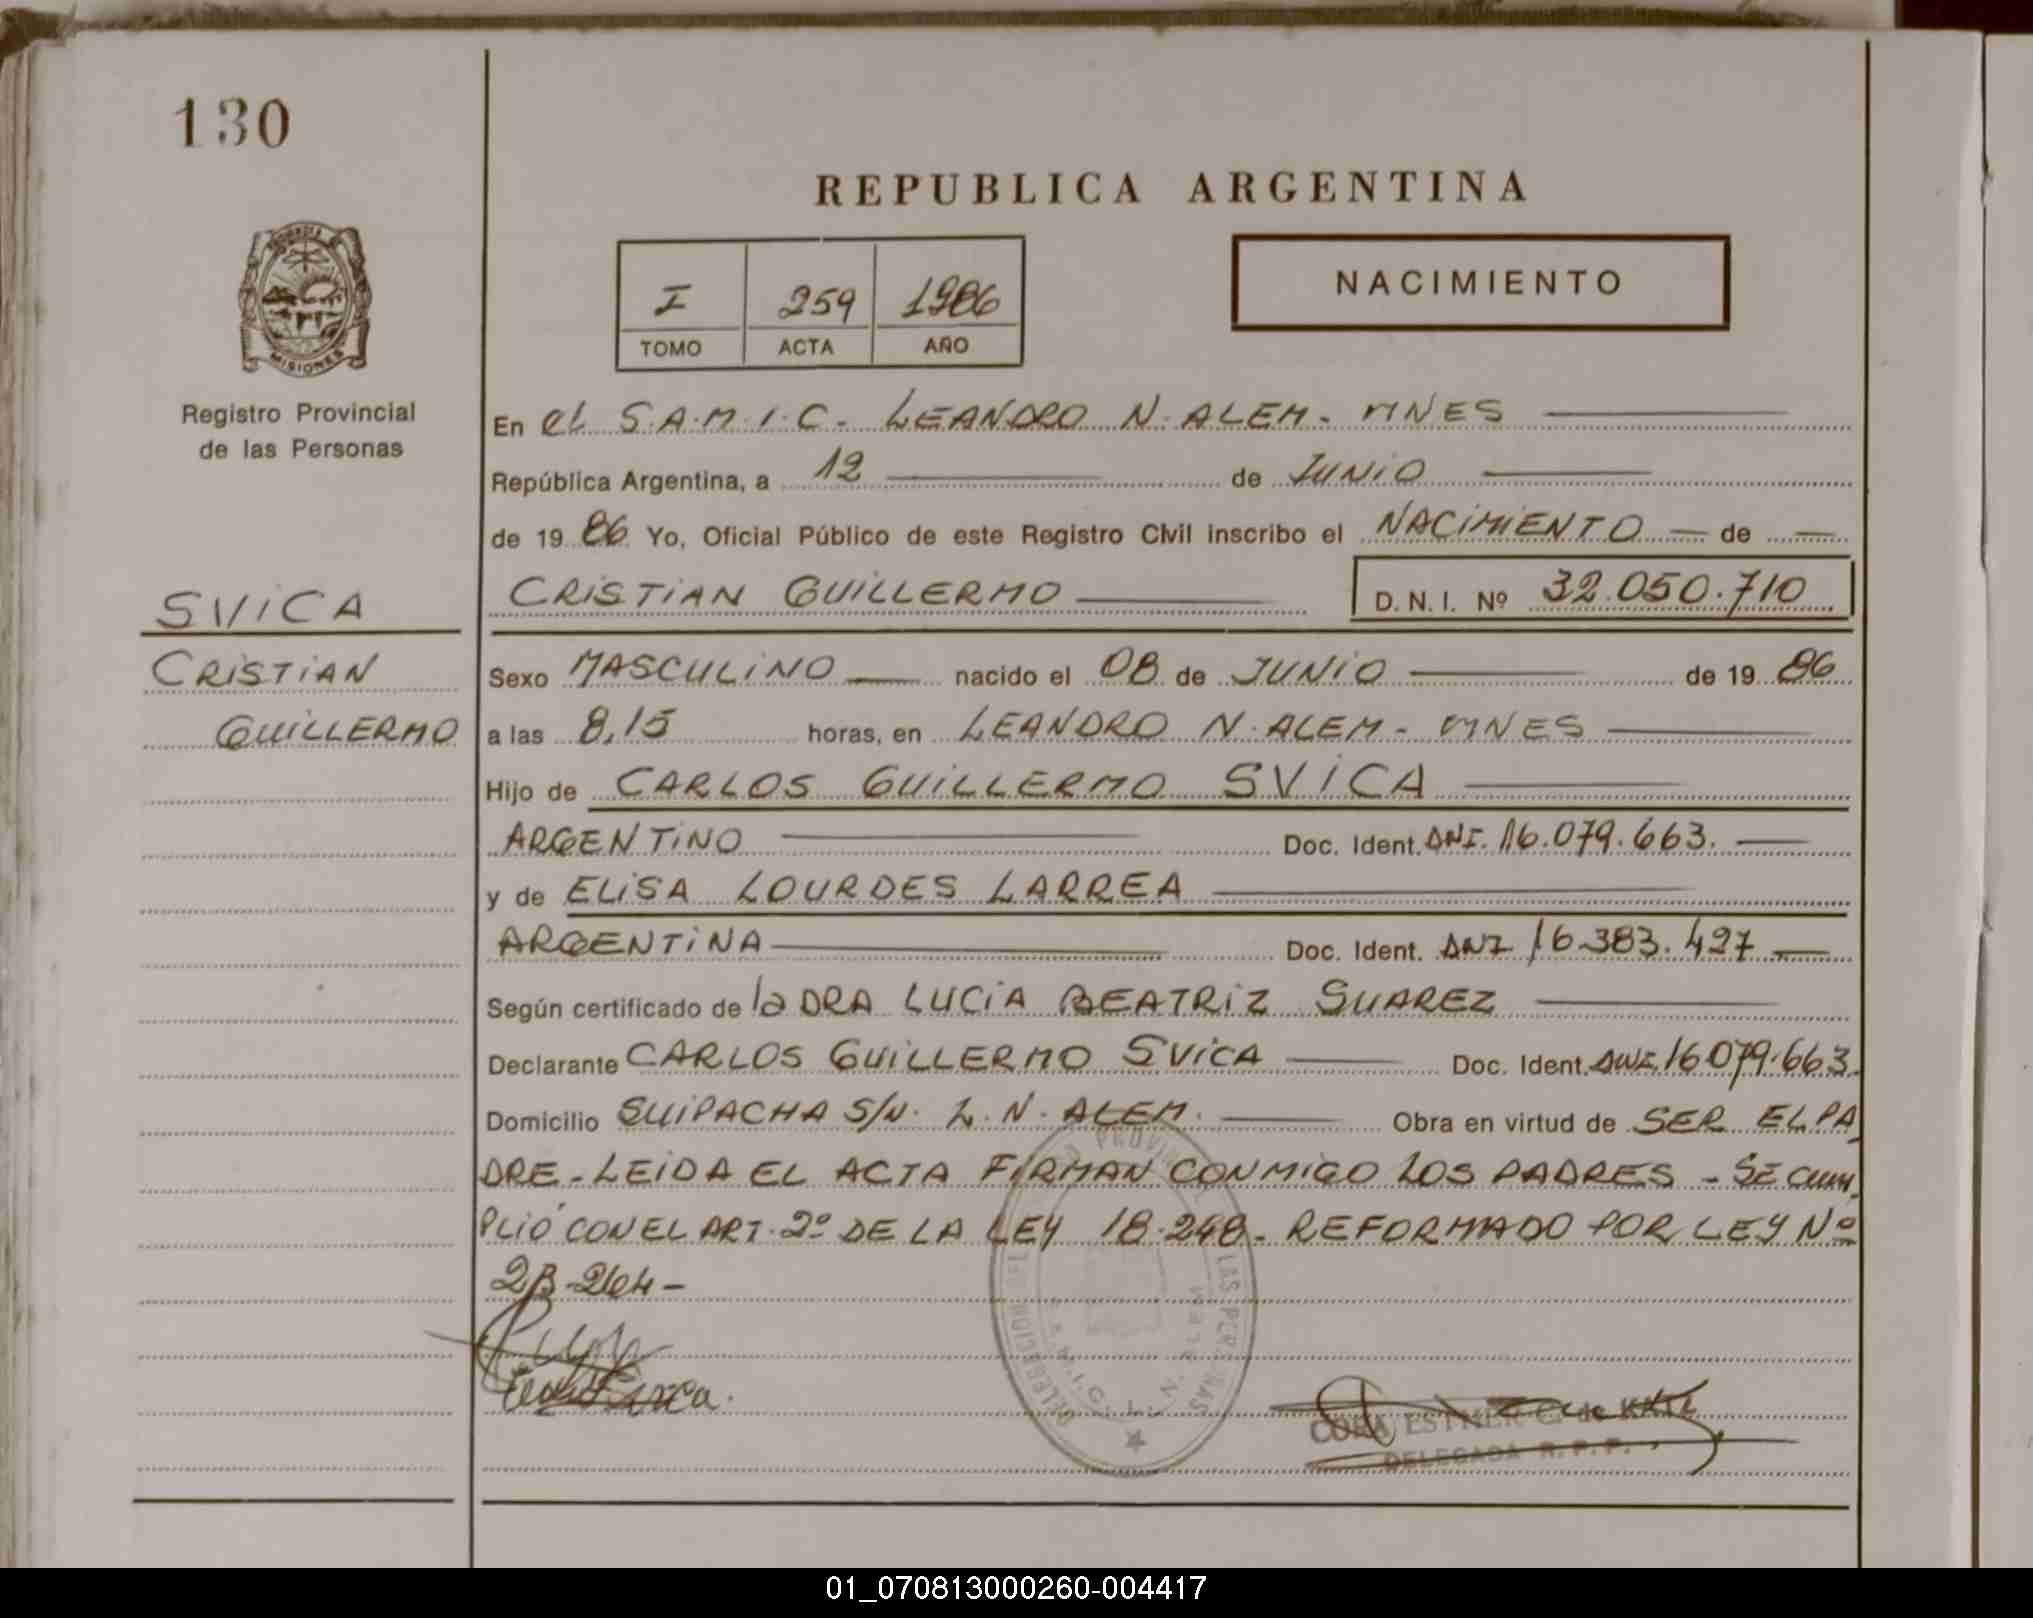 130
REPUBLICA ARGENTINA
I 259 1986
TOMO ACTA AÑO
NACIMIENTO
MISIONES
Registro Provincial
de las Personas
En el S.A.M.I.C. LEANDRO N. ALEM - MNES
República Argentina, a 12 de JUNIO
de 19 86 Yo, Oficial Público de este Registro Civil inscribo el NACIMIENTO de
CRISTIAN GUILLERMO D.N.I. Nº 32.050.710
SVICA
CRISTIAN
GUILLERMO
Sexo MASCULINO nacido el 08 de JUNIO de 19 86
a las 8,15 horas, en LEANDRO N. ALEM - MNES
Hijo de CARLOS GUILLERMO SVICA
ARGENTINO Doc. Ident. DNI. 16.079.663.
y de ELISA LOURDES LARREA
ARGENTINA Doc. Ident. DNI 16.383.427
Según certificado de la DRA LUCIA BEATRIZ SUAREZ
Declarante CARLOS GUILLERMO SVICA Doc. Ident. DNI. 16.079.663.
Domicilio SUIPACHA S/N. L. N. ALEM. Obra en virtud de SER EL PA
DRE - LEIDA EL ACTA FIRMAN CONMIGO LOS PADRES - SE CUM
PLIO CON EL ART. 2º DE LA LEY 18.248 - REFORMADO POR LEY Nº
23-264 -
DELEGACION DEL LAS PERSONAS
S.A.M.I.C. L. N. ALEM
CORA ESTHER G. de
DELEGADA R.P.P.
01_070813000260-004417